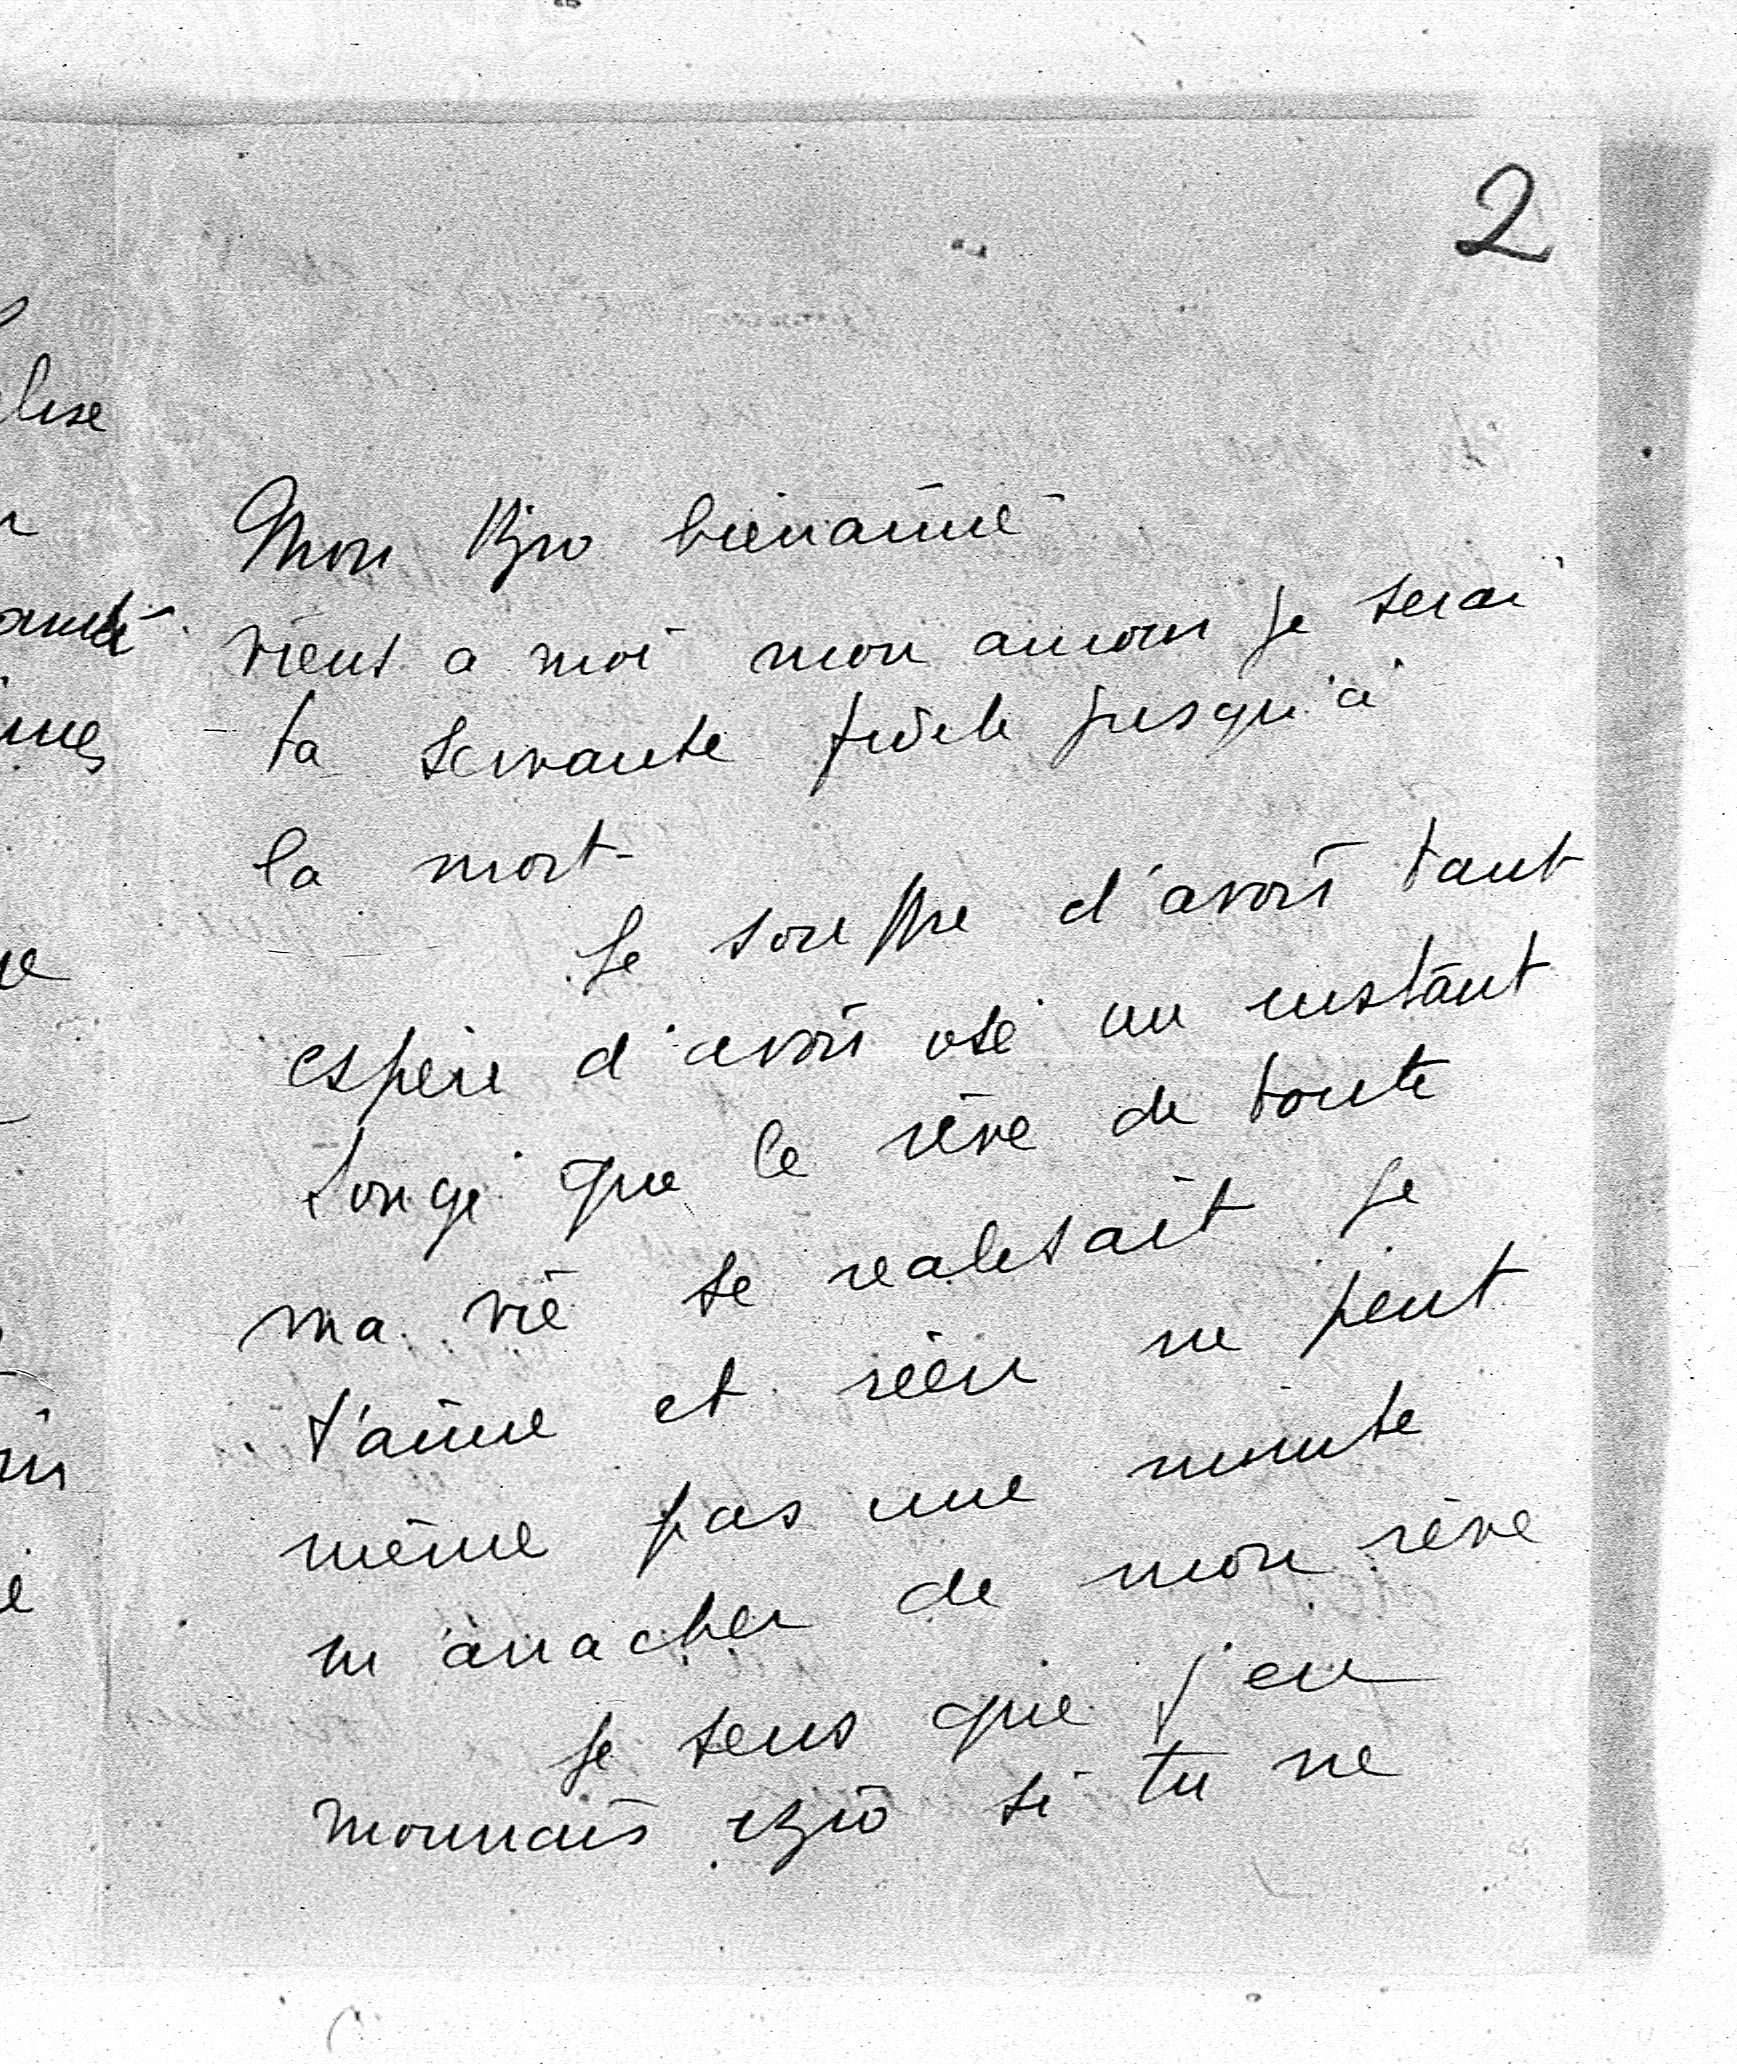 2
Mon Rzio bienaimé
vient a moi mon amour je serai
ta servante fidele jusqu'à
la mort
je souffre d'avoir tant
espéré d'avoir osé un instant
songé que le rêve de toute
ma vie se realisait je
t'aime et rien ne peut
même pas une minute
m'arracher de mon rêve
je sens que j'en
mourrais rzio si tu ne